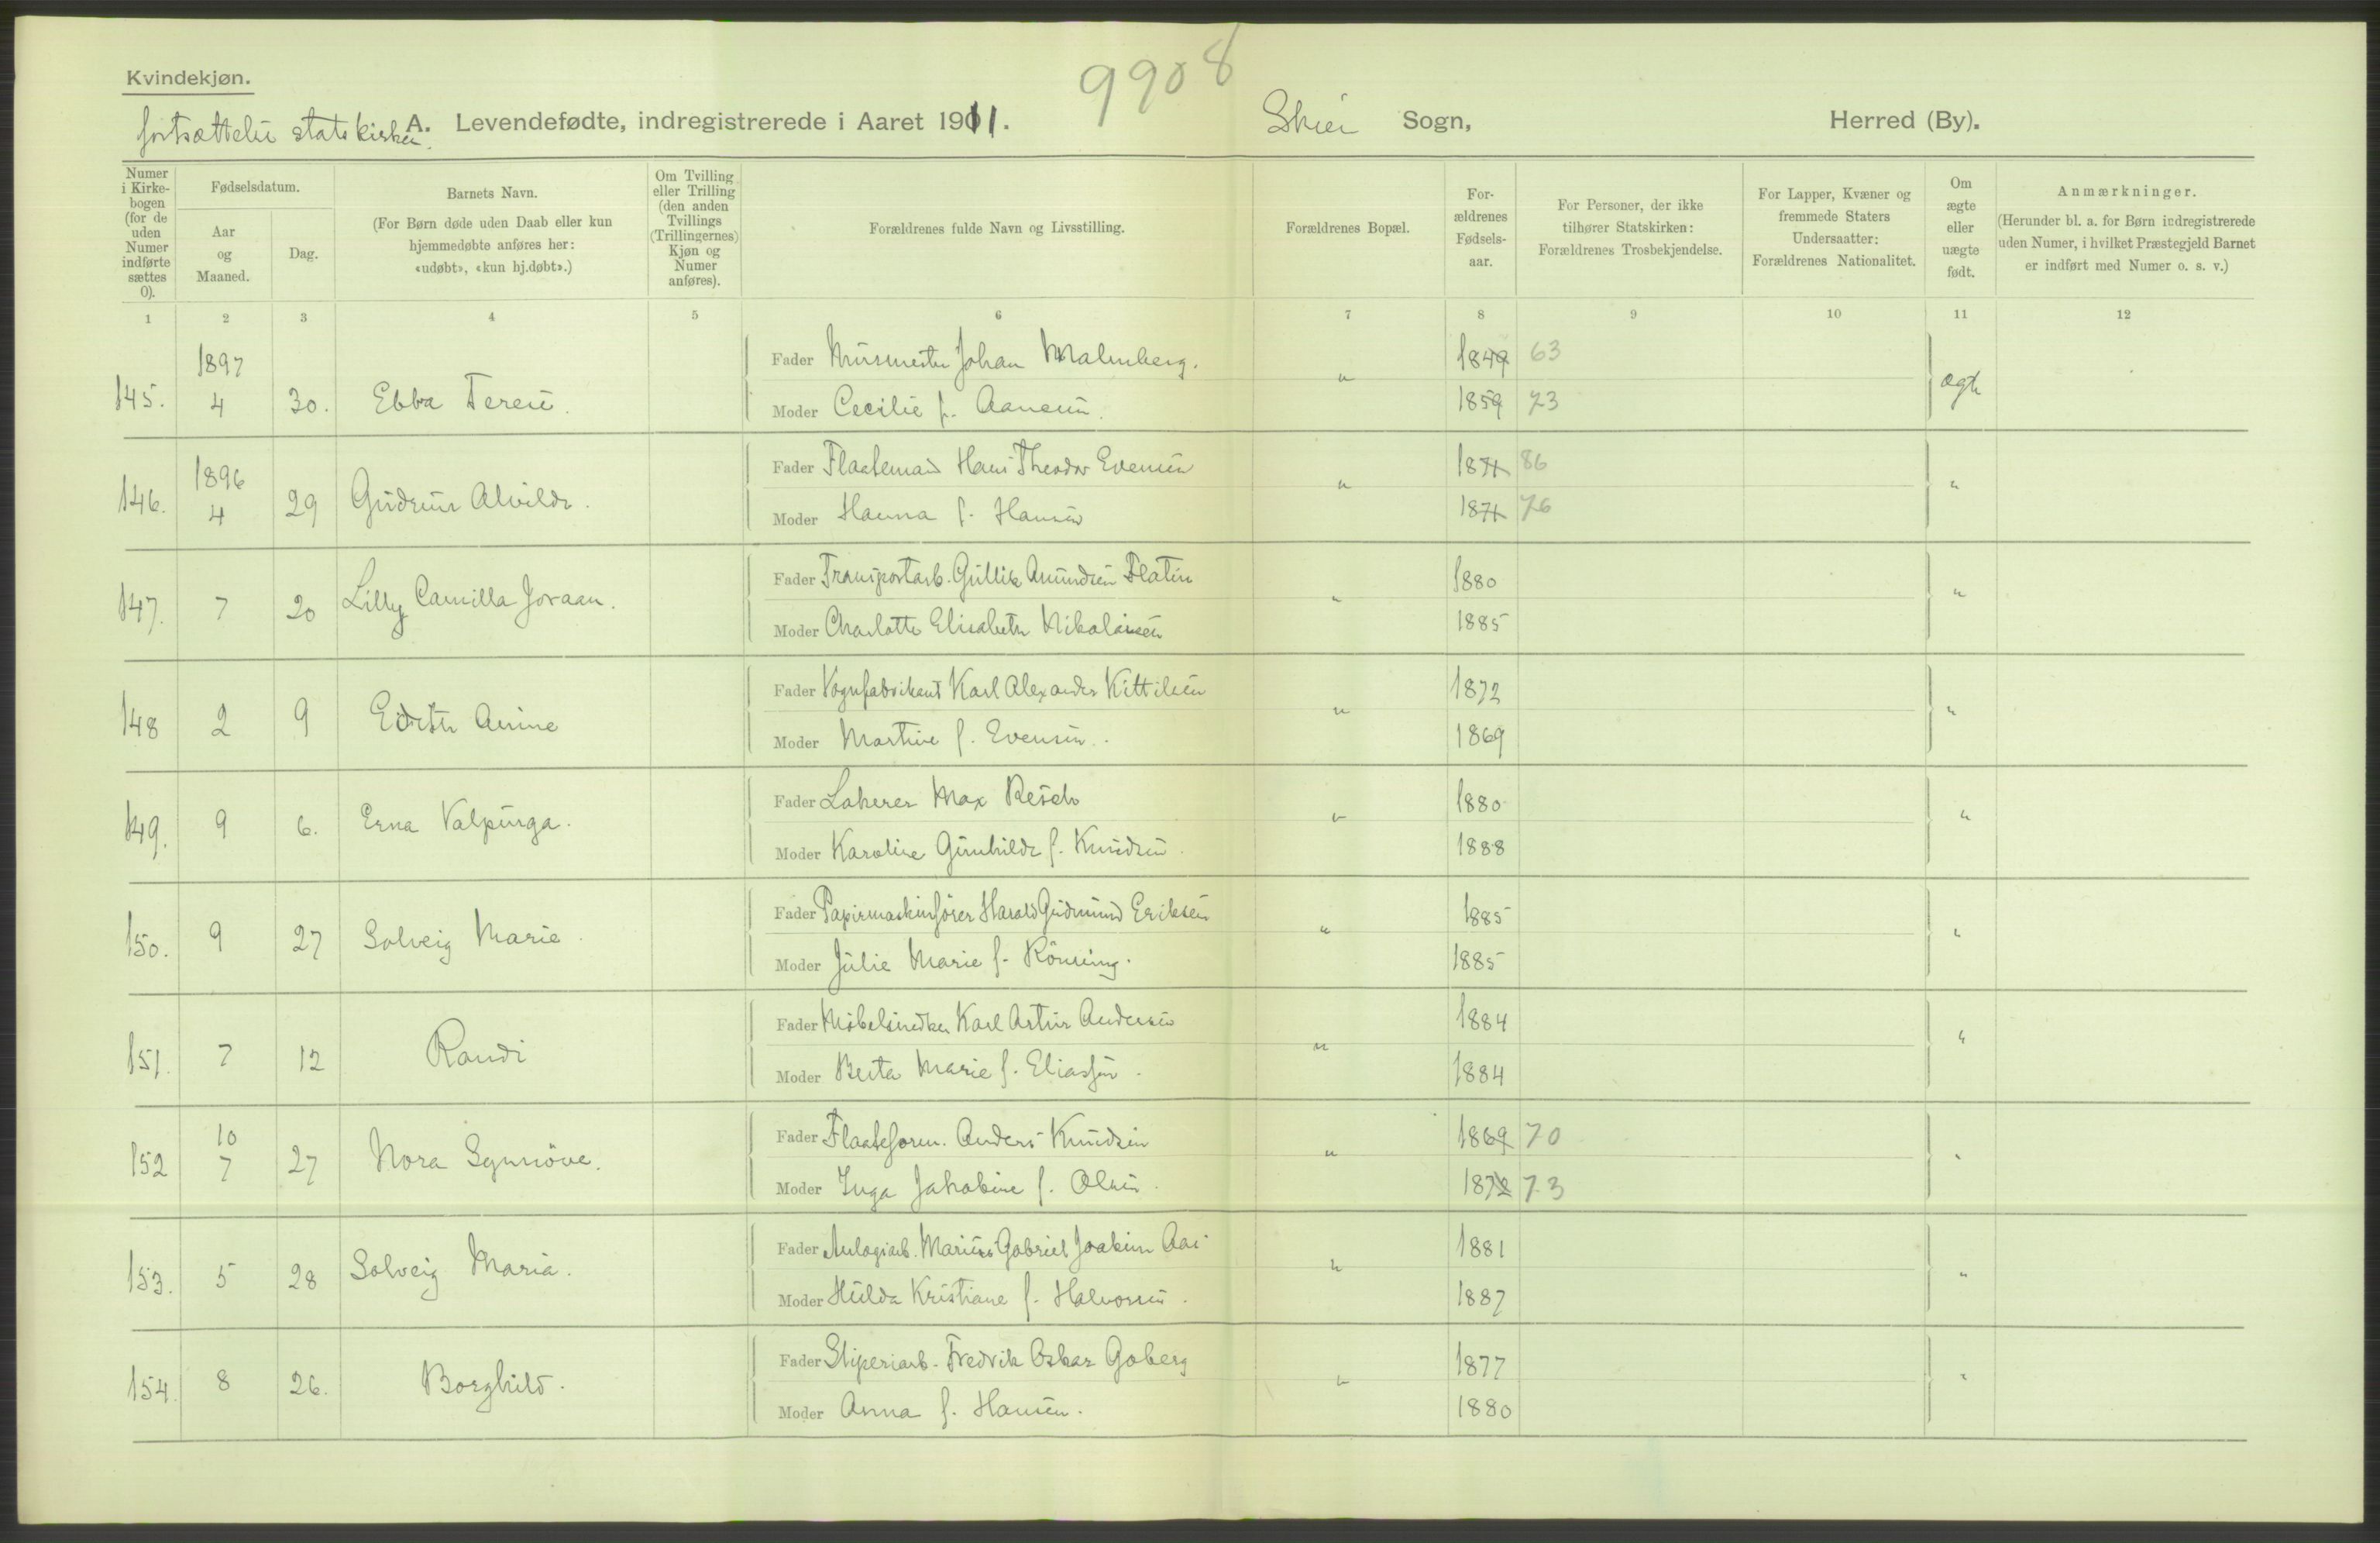 9908
Kvindekjøn.
fortsættelse statskirken.
A. Levendefødte, indregistrerede i Aaret 1911. Skien Sogn, Herred (By).
Numer i Kirkebogen (for de uden Numer indførte sættes 0).
Fødselsdatum.
Aar og Maaned.
Dag.
Barnets Navn.
(For Børn døde uden Daab eller kun hjemmedøbte anføres her: «udøbt», «kun hj.døbt».)
Om Tvilling eller Trilling (den anden Tvillings (Trillingernes) Kjøn og Numer anføres).
Forældrenes fulde Navn og Livsstilling.
Forældrenes Bopæl.
Forældrenes Fødselsaar.
For Personer, der ikke tilhører Statskirken: Forældrenes Trosbekjendelse.
For Lapper, Kvæner og fremmede Staters Undersaatter: Forældrenes Nationalitet.
Om ægte eller uægte født.
Anmærkninger.
(Herunder bl. a. for Børn indregistrerede uden Numer, i hvilket Præstegjeld Barnet er indført med Numer o. s. v.)
1 2 3 4 5 6 7 8 9 10 11 12
1897
Fader Mursmester Johan Malmberg. 1849 63
145. 4 30. Ebba Terese. " ægte
Moder Cecilie f. Aanesen. 1859 73
1896
Fader Flaatemand Hans Theodor Evensen 1871 86
146. 4 29 Gudrun Alvilde. " "
Moder Hanna f. Hansen 1871 76
Fader Transportarb. Gullik Amundsen Flatin 1880
147. 7 20 Lilly Camilla Joraan. " "
Moder Charlotte Elisabeth Nikolaisen 1885
Fader Vognfabrikant Karl Alexander Kittilsen 1872
148 2 9 Edith Anine " "
Moder Martine f. Evensen. 1869
Fader Lakerer Max Resch 1880
149. 9 6. Erna Valpurga. " "
Moder Karoline Gunhilde f. Knudsen. 1888
Fader Papirmaskinfører Harald Gudmund Eriksen 1885
150. 9 27 Solveig Marie. " "
Moder Julie Marie f. Rönning. 1885
Fader Möbelsnedker Karl Artur Andersen 1884
151. 7 12 Randi " "
Moder Berta Marie f. Eliassen. 1884
10
Fader Flaateform. Anders Knudsen 1869 70
152 7 27 Nora Synnöve. " "
Moder Inga Jakobine f. Olsen. 1872 73
Fader Anlægsarb. Marius Gabriel Joakim Aas 1881
153. 5 28 Solveig Maria. " "
Moder Hulda Kristiane f. Halvorsen. 1887
Fader Sliperiarb. Fredrik Oskar Goberg 1877
154. 8 26. Borghild. " "
Moder Anna f. Hansen. 1880